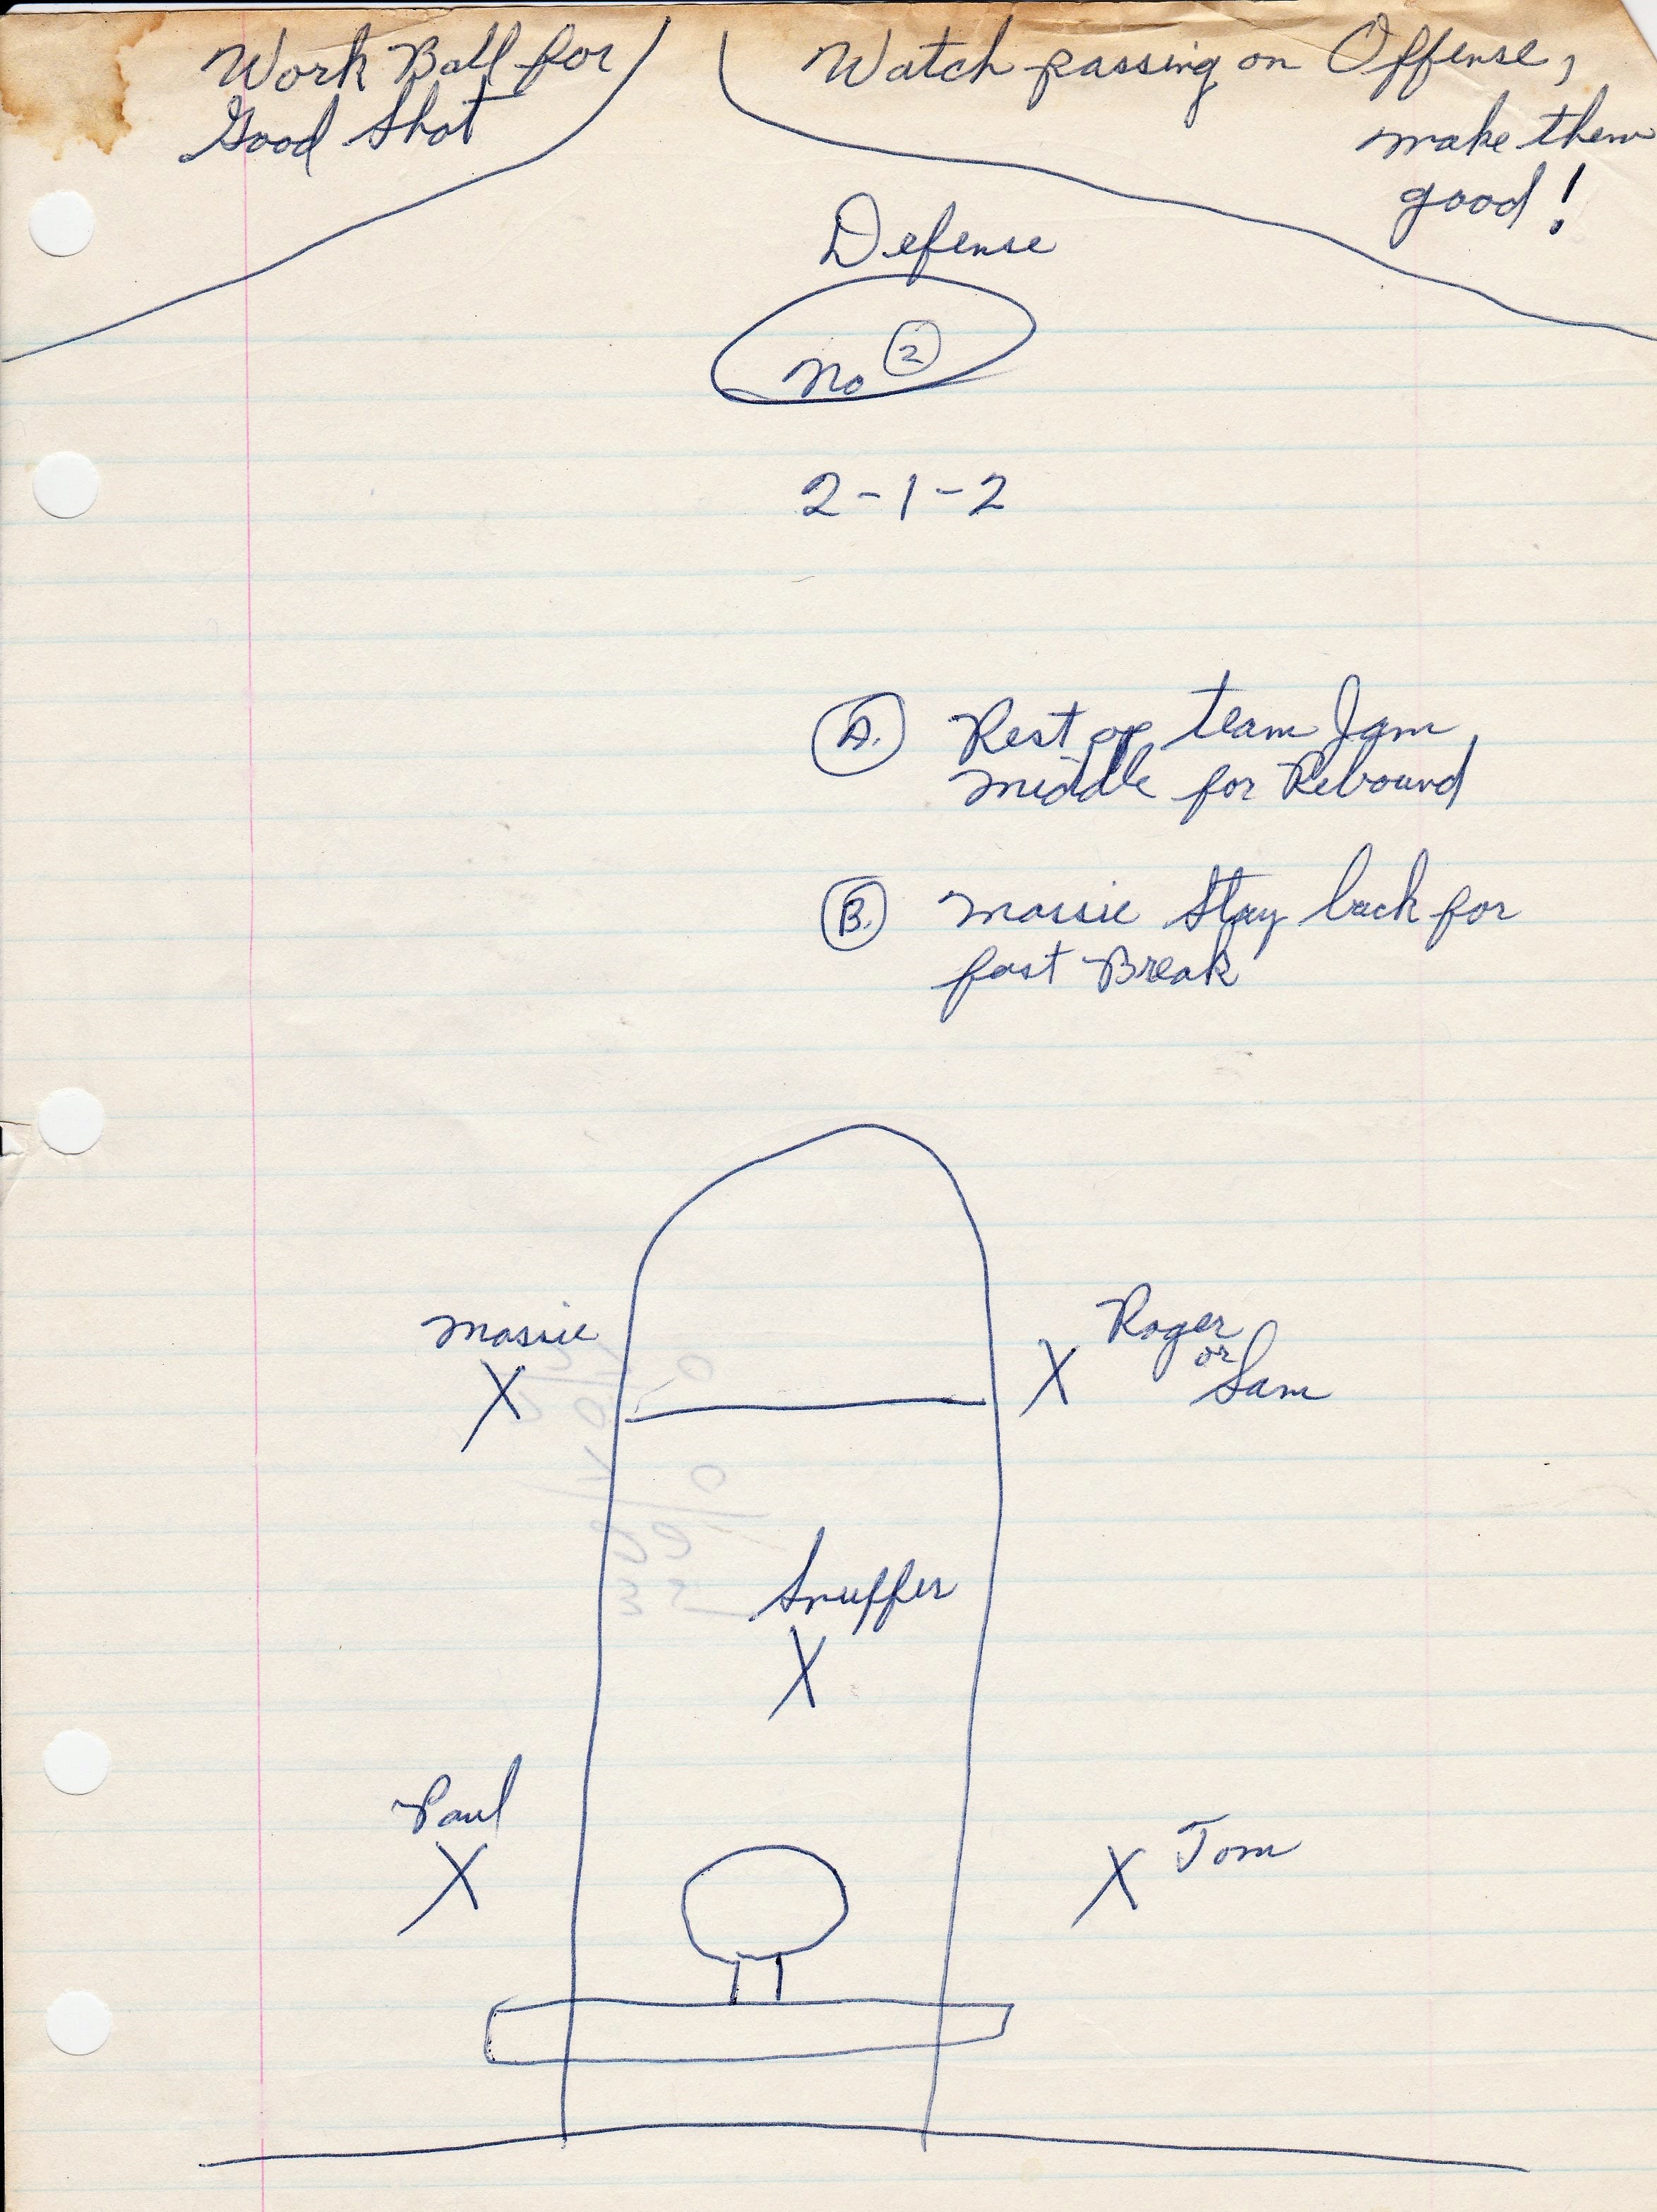 Work Ball for
Good Shot
Watch passing on Offense,
make them
good!
Defense
No 2
2-1-2
A. Rest of team Jam
Middle for Rebound
B. Massie Stay back for
fast Break
Massie
X
X
Roger
or
Sam
Snuffer
X
Paul
X
X Tom